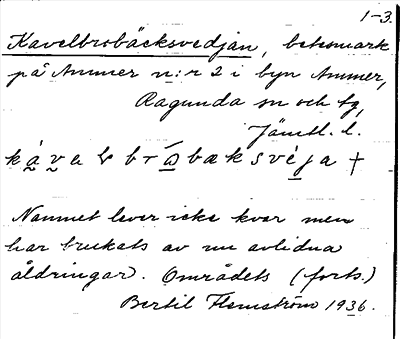 1-3.
Kavelbrobäcksvedjan, betesmark
på Ammer n:r 2 i byn Ammer,
Ragunda sn och tg,
Jämtl. l.
Namnet lever icke kvar men
har brukats av nu avlidna
åldringar. Områdets (forts.)
Bertil Flemström 1936.